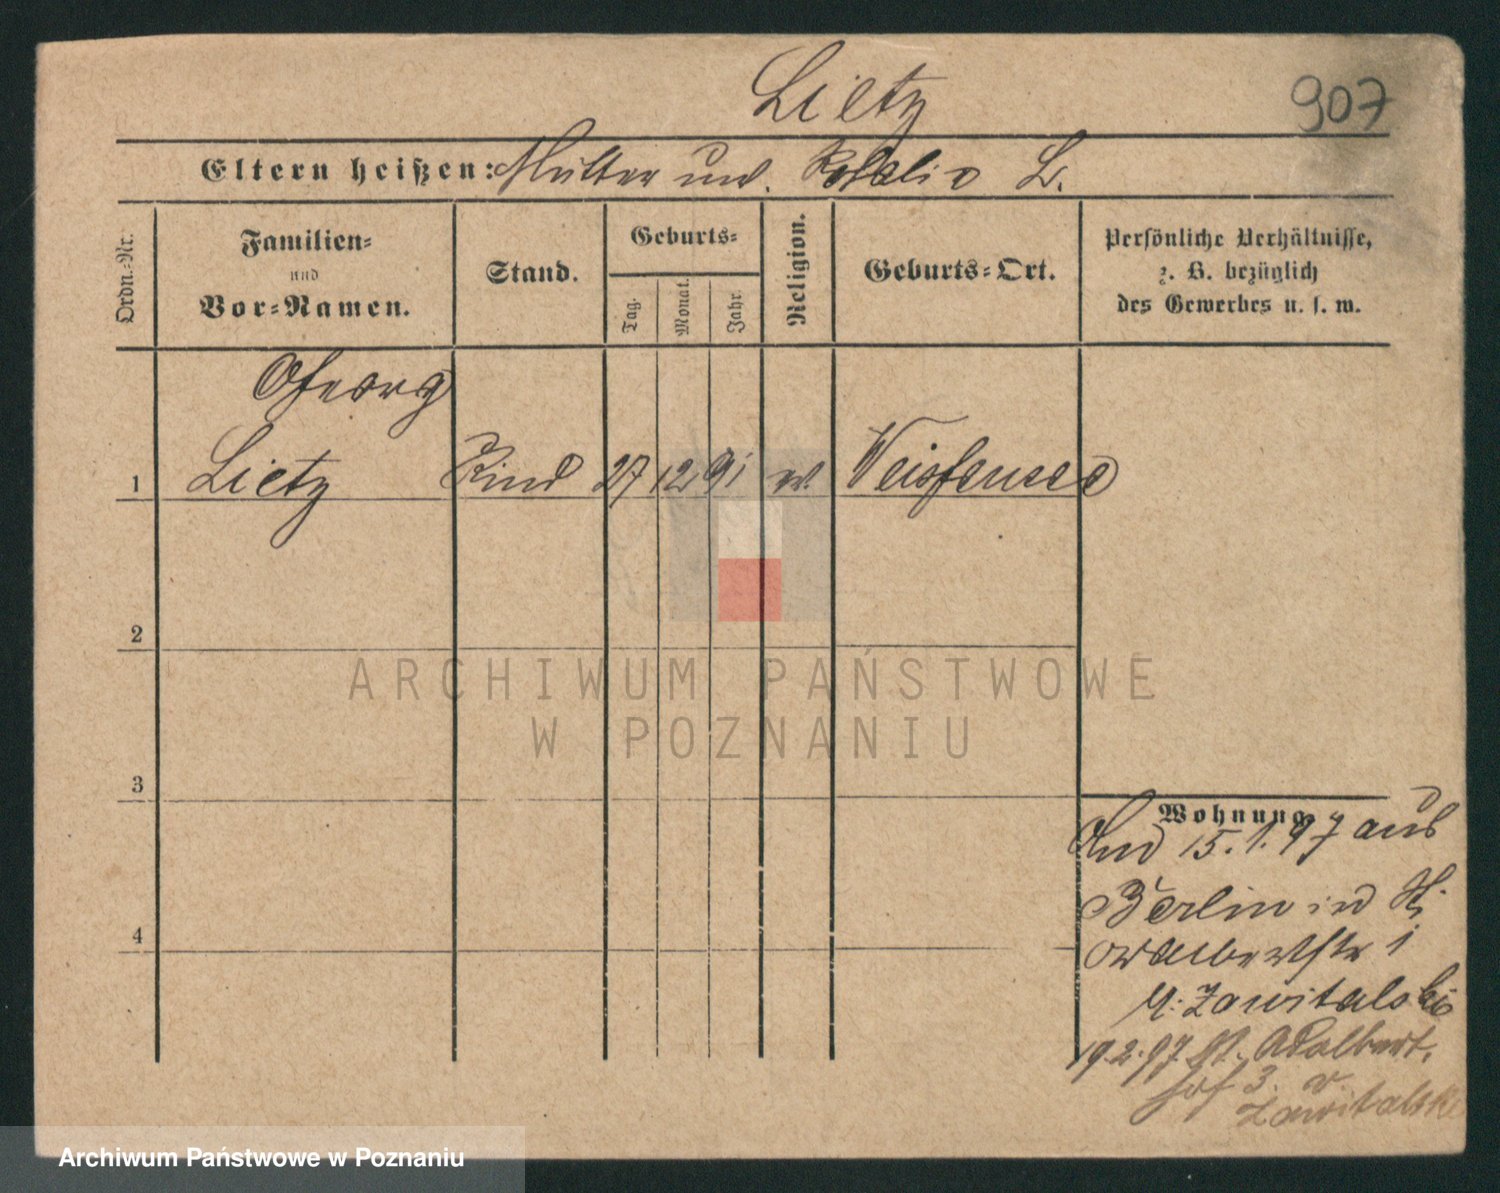 Lietz
907
Eltern heißen: Mutter unv. Rosalie L.
Ordn.-Nr.
Familien-
und
Vor-Namen.
Stand.
Geburts-
Tag.
Monat.
Jahr.
Religion.
Geburts-Ort.
Persönliche Verhältnisse,
z. B. bezüglich
des Gewerbes u. s. w.
Georg
1 Lietz Kind 27 12 91 ev. Weisfensee
2
3
4
Wohnung
15. 1. 97 aus
Berlin in St.
1
Zawitalski
19.2.97 St. Adalbert.
3. v
Zawitalski
ARCHIWUM PAŃSTWOWE
W POZNANIU
Archiwum Państwowe w Poznaniu